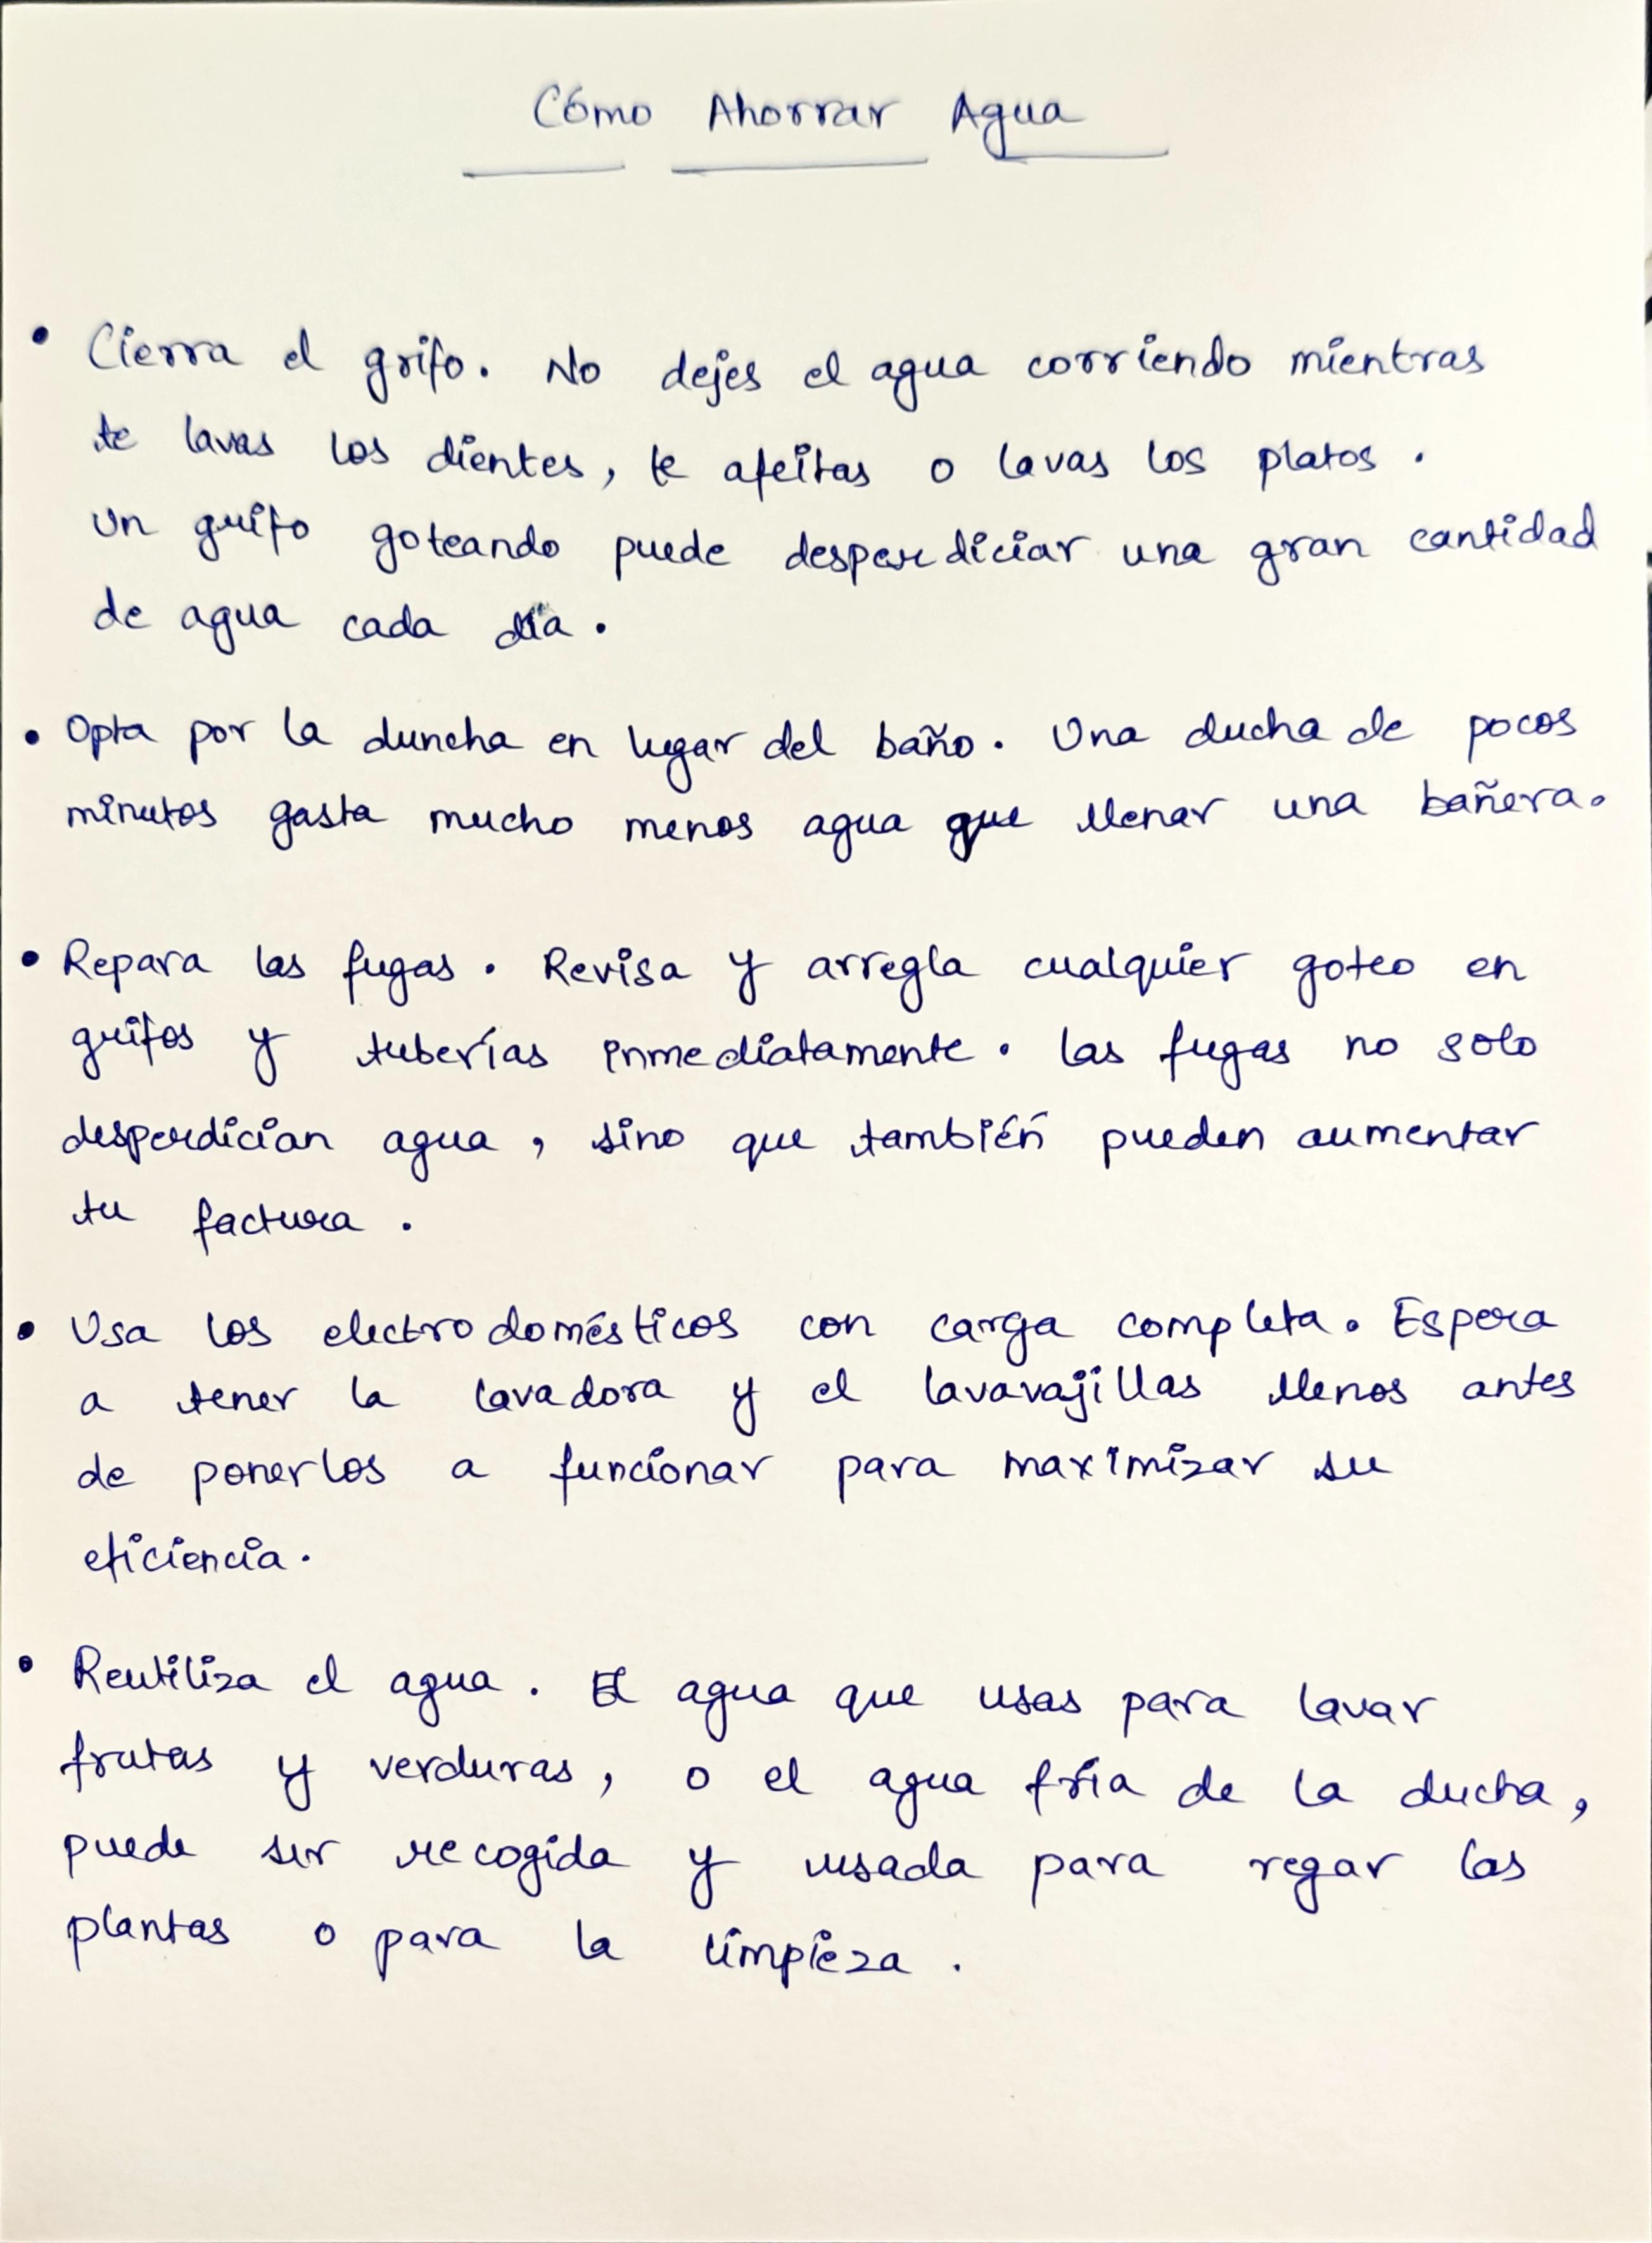 Cómo Ahorrar Agua
• Cierra el grifo. No dejes el agua corriendo mientras
te lavas los dientes, te afeitas o lavas los platos.
Un grifo goteando puede desperdiciar una gran cantidad
de agua cada día.
• Opta por la duncha en lugar del baño. Una ducha de pocos
minutos gasta mucho menos agua que llenar una bañera.
• Repara las fugas. Revisa y arregla cualquier goteo en
grifos y tuberías inmediatamente. las fugas no solo
desperdician agua, sino que también pueden aumentar
tu factura.
• Usa los electrodomésticos con carga completa. Espera
a tener la lavadora y el lavavajillas llenos antes
de ponerlos a funcionar para maximizar su
eficiencia.
• Reutiliza el agua. El agua que usas para lavar
frutas y verduras, o el agua fría de la ducha,
puede ser recogida y usada para regar las
plantas o para la limpieza.